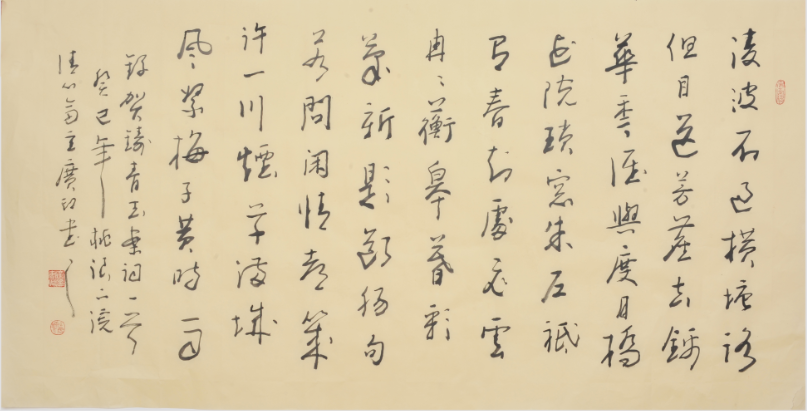 淩波不過橫塘路
但目送芳塵去錦
華秊誰與度月橋
花院瑣窗朱戶祗
有春知處飛雲
冉冉蘅皋暮彩
筆新題斷腸句
若問閑情都幾
許一川煙草滿城
風絮梅子黃時雨
錄賀鑄青玉案詞一首
癸巳年桃浪
清心齋主廣書